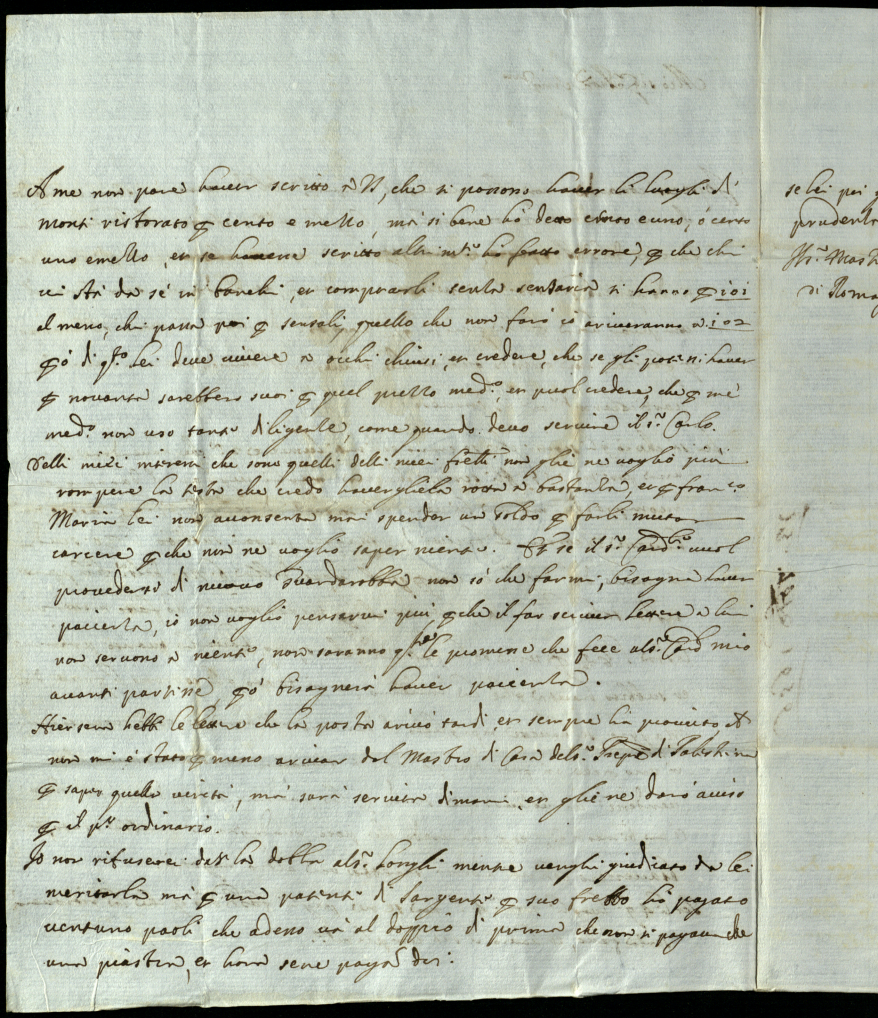 A me non pare haver scritto à V, che si possono haver li luoghi di
monti ristorato ꝑ cento e mezzo, mà si bene hò detto cento e uno, ò cento
uno e mezzo, et se havesse scritto altrim.te hò fatto errore, ꝑ che chi
vi stà da sè in banchi, et comprarli senza senseria si hanno ꝑ 101
al meno, chi passa poi ꝑ sensali, quello che non farò io ariveranno à 102
ꝑò di q.to lei deve vivere a occhi chiusi, et credere, che se gli potessi haver
ꝑ novanta sarebbero suoi ꝑ quel prezzo med.o, et puol credere, che ꝑ me
med.o non uso tante diligenze, come quando devo servire il s.r Carlo.
Delli miei interessi che sono quelli delli miei fratti non gliè ne voglio più
rompere la testa che credo haverghiela rotta à bastanza, et ꝑ Fran.co
Maria lei non acconsenta mai spender un soldo ꝑ farli mutar
carcere ꝑ che non ne voglio saper niente. Et se il s.r Card.le vuol
provedersi di nuovo Guardarobba non sò che farmi, bisogna haver
pacienza, io non voglio pensarvi più, ꝑ che il far scriver lettere a lui
non servono a niente, non saranno q.ste le promesse che fece al s.r Card mio
avanti partisse ꝑò bisognerà haver pacienza.
Hiersera hebbi le lettere che la posta arivò tardi, et sempre hà piovuto, et
non mi è stato ꝑmeso arivar dal Mastro di Casa del s.r Prēpe di Palestrina
ꝑ saper quella verità, mà sarà servita dimani, et gliè ne darò aviso
ꝑ il p.o ordinario.
Io non rifuserei dar la dobla al s.r Longhi mentre venghi giudicato da lei
meritarla mà ꝑ una patente di Sargente ꝑ suo frello hò pagato
ventuno paoli che adesso và al doppio di prima che non si pagava che
una piastra, et hora se ne paga doi:
se lei poi
prudenza
di Roma